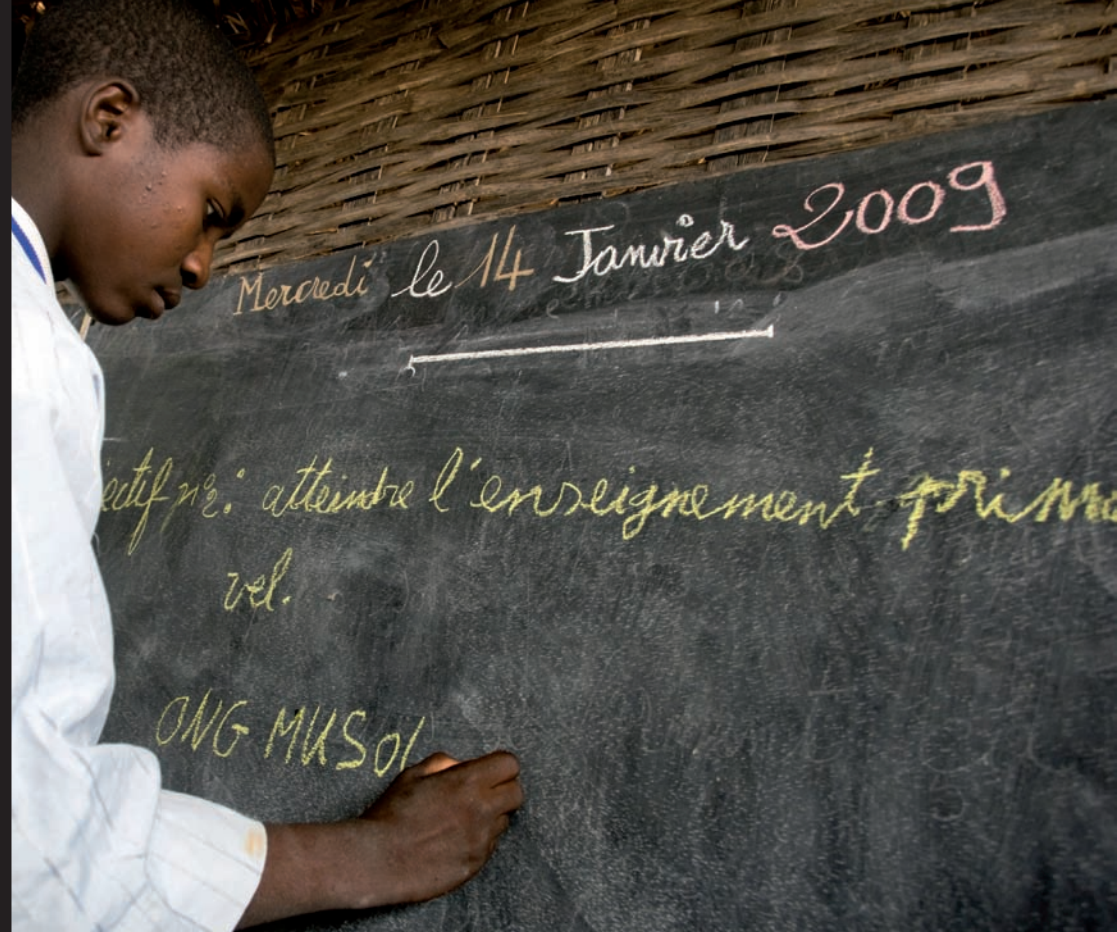 Mercredi le 14 Janvier 2009
ectif n°2: atteindre l'enseignement prim
vel.
ONG MUSO